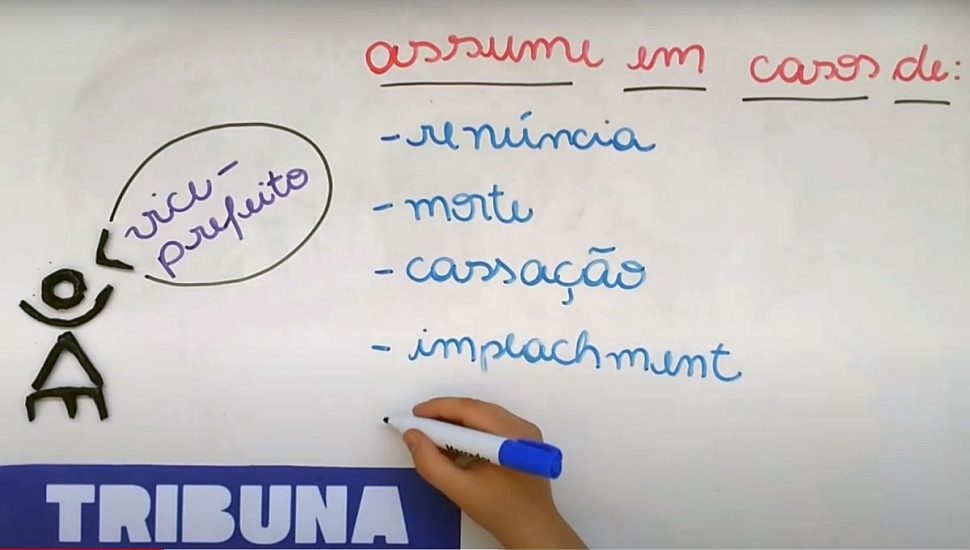 assume em casos de:
- renúncia
vice-
prefeito
- morte
- cassação
- impeachment
TRIBUNA